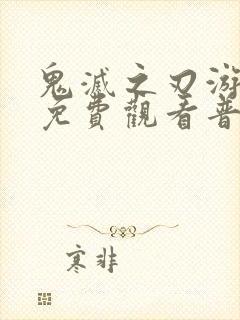 鬼滅之刃游
免費觀看普
寒非